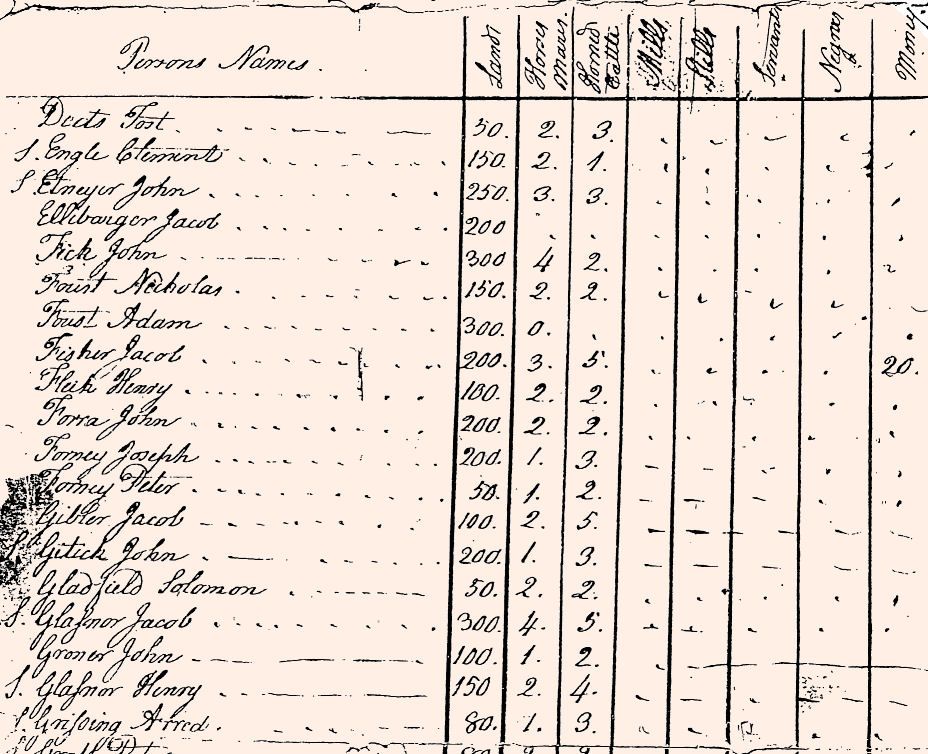 Persons Names. Land Horses Mares. Horned Cattle Mills Stills Servants Negroes Money.
Deets Tost 50. 2. 3.
S. Engle Clement 150. 2. 1.
S Etneyer John 250. 3. 3.
Ellibarger Jacob 200
Fick John 300 4 2.
Foust Nicholas 150. 2. 2.
Foust Adam 300. 0.
Fisher Jacob 200. 3. 5. 20.
Fleck Henry 100. 2. 2.
Forra John 200. 2. 2.
Forney Joseph 200. 1. 3.
Forney Peter 50. 1. 2.
Gibler Jacob 100. 2. 5.
S. Gitick John 200. 1. 3.
Gladfield Solomon 50. 2. 2.
S. Glaſsnor Jacob 300. 4. 5.
Groner John 100. 1. 2.
S. Glaſsnor Henry 150 2. 4.
S. 80. 1. 3.